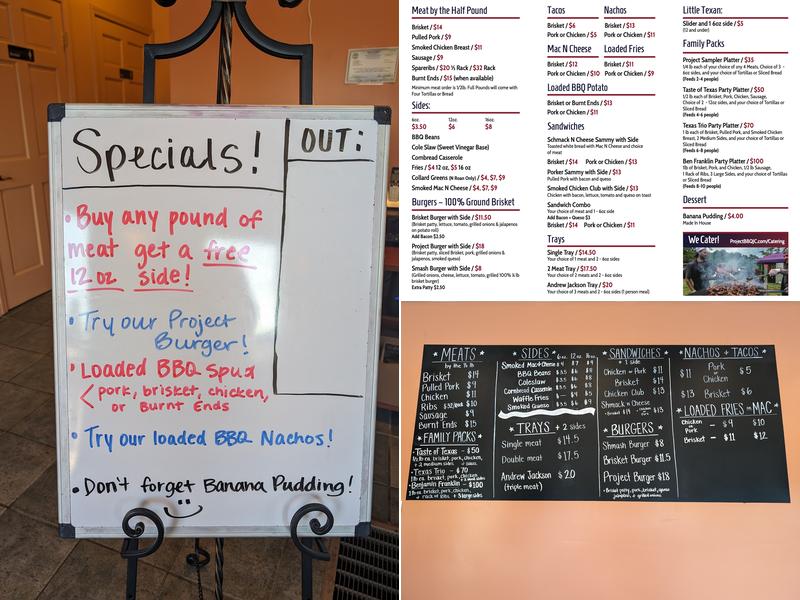 Specials!
OUT:
• Buy any pound of
meat get a free
12 oz side!
• Try our Project
Burger!
• Loaded BBQ Spud
< pork, brisket, chicken,
or Burnt Ends
• Try our loaded BBQ Nachos!
• Don't forget Banana Pudding!
Meat by the Half Pound
Brisket / $14
Pulled Pork / $9
Smoked Chicken Breast / $11
Sausage / $9
Spareribs / $20 ½ Rack / $32 Rack
Burnt Ends / $15 (when available)
Minimum meat order is 1/2lb. Full Pounds will come with
Four Tortillas or Bread
Sides:
6oz. 12oz. 16oz.
$3.50 $6 $8
BBQ Beans
Cole Slaw (Sweet Vinegar Base)
Cornbread Casserole
Fries / $4 12 oz, $5 16 oz
Collard Greens (N Roan Only) / $4, $7, $9
Smoked Mac N Cheese / $4, $7, $9
Burgers – 100% Ground Brisket
Brisket Burger with Side / $11.50
(Brisket patty, lettuce, tomato, grilled onions & jalapenos
on potato roll)
Add Bacon $2.50
Project Burger with Side / $18
(Brisket patty, sliced Brisket, pork, grilled onions &
jalapenos, smoked queso)
Smash Burger with Side / $8
(Grilled onions, cheese, lettuce, tomato, grilled 100% & lb
brisket burger)
Extra Patty $2.50
Tacos
Brisket / $6
Pork or Chicken / $5
Nachos
Brisket / $13
Pork or Chicken / $11
Mac N Cheese
Brisket / $12
Pork or Chicken / $10
Loaded Fries
Brisket / $11
Pork or Chicken / $9
Loaded BBQ Potato
Brisket or Burnt Ends / $13
Pork or Chicken / $11
Sandwiches
Schmack N Cheese Sammy with Side
Toasted white bread with Mac N Cheese and choice
of meat
Brisket / $14 Pork or Chicken / $13
Porker Sammy with Side / $13
Pulled Pork with bacon and queso
Smoked Chicken Club with Side / $13
Chicken with bacon, lettuce, tomato and queso on toast
Sandwich Combo
Your choice of meat and 1 - 6oz side
Add Bacon + Queso $3
Brisket / $14 Pork or Chicken / $11
Trays
Single Tray / $14.50
Your choice of 1 meat and 2 - 6oz sides
2 Meat Tray / $17.50
Your choice of 2 meats and 2 - 6oz sides
Andrew Jackson Tray / $20
Your choice of 3 meats and 2 - 6oz sides (1 person meal)
Little Texan:
Slider and 1 6oz side / $5
(12 and under)
Family Packs
Project Sampler Platter / $35
1/4 lb each of your choice of any 4 Meats, Choice of 3 -
6oz sides, and your choice of Tortillas or Sliced Bread
(Feeds 2-4 people)
Taste of Texas Party Platter / $50
1/2 lb each of Brisket, Pork, Chicken, Sausage,
Choice of 2 - 12oz sides, and your choice of Tortillas or
Sliced Bread
(Feeds 4-6 people)
Texas Trio Party Platter / $70
1 lb each of Brisket, Pulled Pork, and Smoked Chicken
Breast, 2 Medium Sides, and your choice of Tortillas or
Sliced Bread
(Feeds 6-8 people)
Ben Franklin Party Platter / $100
1 lb each of Brisket, Pork, Chicken,
1 Rack of Ribs, 3 Large Sides, and your choice of Tortillas
or Sliced Bread
(Feeds 8-10 people)
Dessert
Banana Pudding / $4.00
Made In House
We Cater! ProjectBBQJC.com/Catering
* MEATS *
by the ½ lb
Brisket $14
Pulled Pork $9
Chicken $11
Ribs $10
Sausage $9
Burnt Ends $15
* FAMILY PACKS *
• Taste of Texas - $50
½ lb ea. brisket, pork, chicken,
+ 2 medium sides
• Texas Trio - $70
1 lb ea. brisket, pork, chicken
• Benjamin Franklin - $100
1 lb ea. brisket, pork, chicken,
+ rack of ribs + 3 large sides
* SIDES * 6oz. 12oz. 16oz.
Smoked Mac + Cheese $4 $7 $9
BBQ Beans $3.5 $6 $8
Coleslaw $3.5 $6 $8
Cornbread Casserole $3.5 $6 $8
Waffle Fries
Smoked Queso
* TRAYS * + 2 sides
Single meat $14.5
Double meat $17.5
Andrew Jackson $20
(triple meat)
* SANDWICHES *
+ 1 side
Chicken or Pork $11
Brisket $14
Chicken Club $13
Shmack n Cheese
* BURGERS *
Shmash Burger $8
Brisket Burger $11.5
Project Burger $18
* NACHOS + TACOS *
$11 Pork or Chicken $5
$13 Brisket $6
* LOADED FRIES or MAC *
Chicken or Pork - $9 $10
Brisket - $11 $12